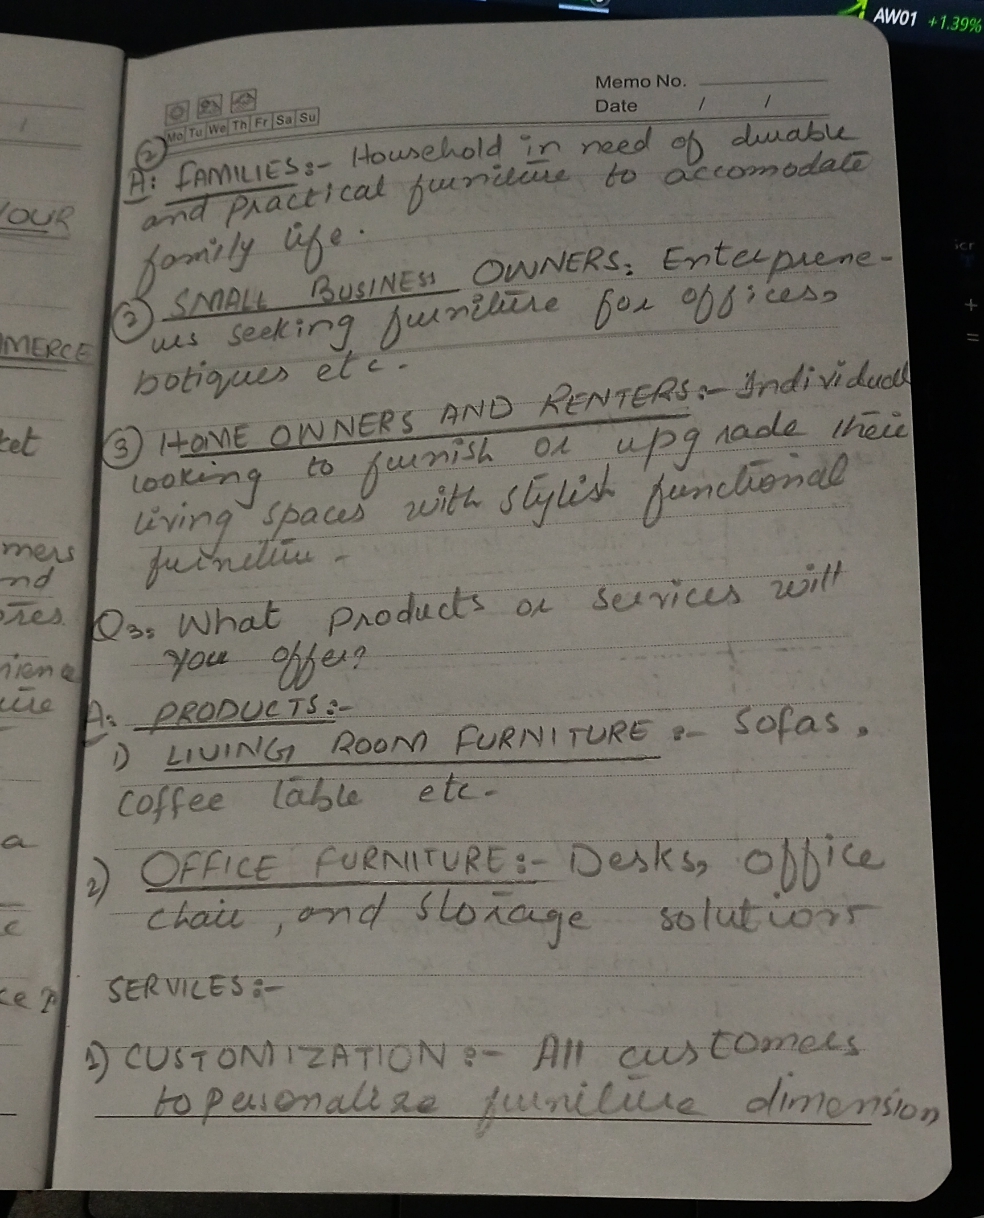 AW01 +1.39%
Memo No.
Date / /
Mo Tu We Th Fr Sa Su
②
A: FAMILIES:- Household in need of durable
and practical furniture to accomodate
family life.
② SMALL BUSINESS OWNERS: Enterprene-
urs seeking furniture for offices,
botiques etc.
③ HOME OWNERS AND RENTERS:- Individual
looking to furnish or upgrade their
living spaces with stylish functional
furniture.
Q3: What products or services will
you offer?
A: PRODUCTS:-
1) LIVING ROOM FURNITURE :- Sofas,
coffee table etc.
2) OFFICE FURNITURE:- Desks, office
chair, and storage solutions
SERVICES:-
1) CUSTOMIZATION:- All customers
to personalize furniture dimension
OUR
MERCE
ket
mers
nd
ience
ure
a
c